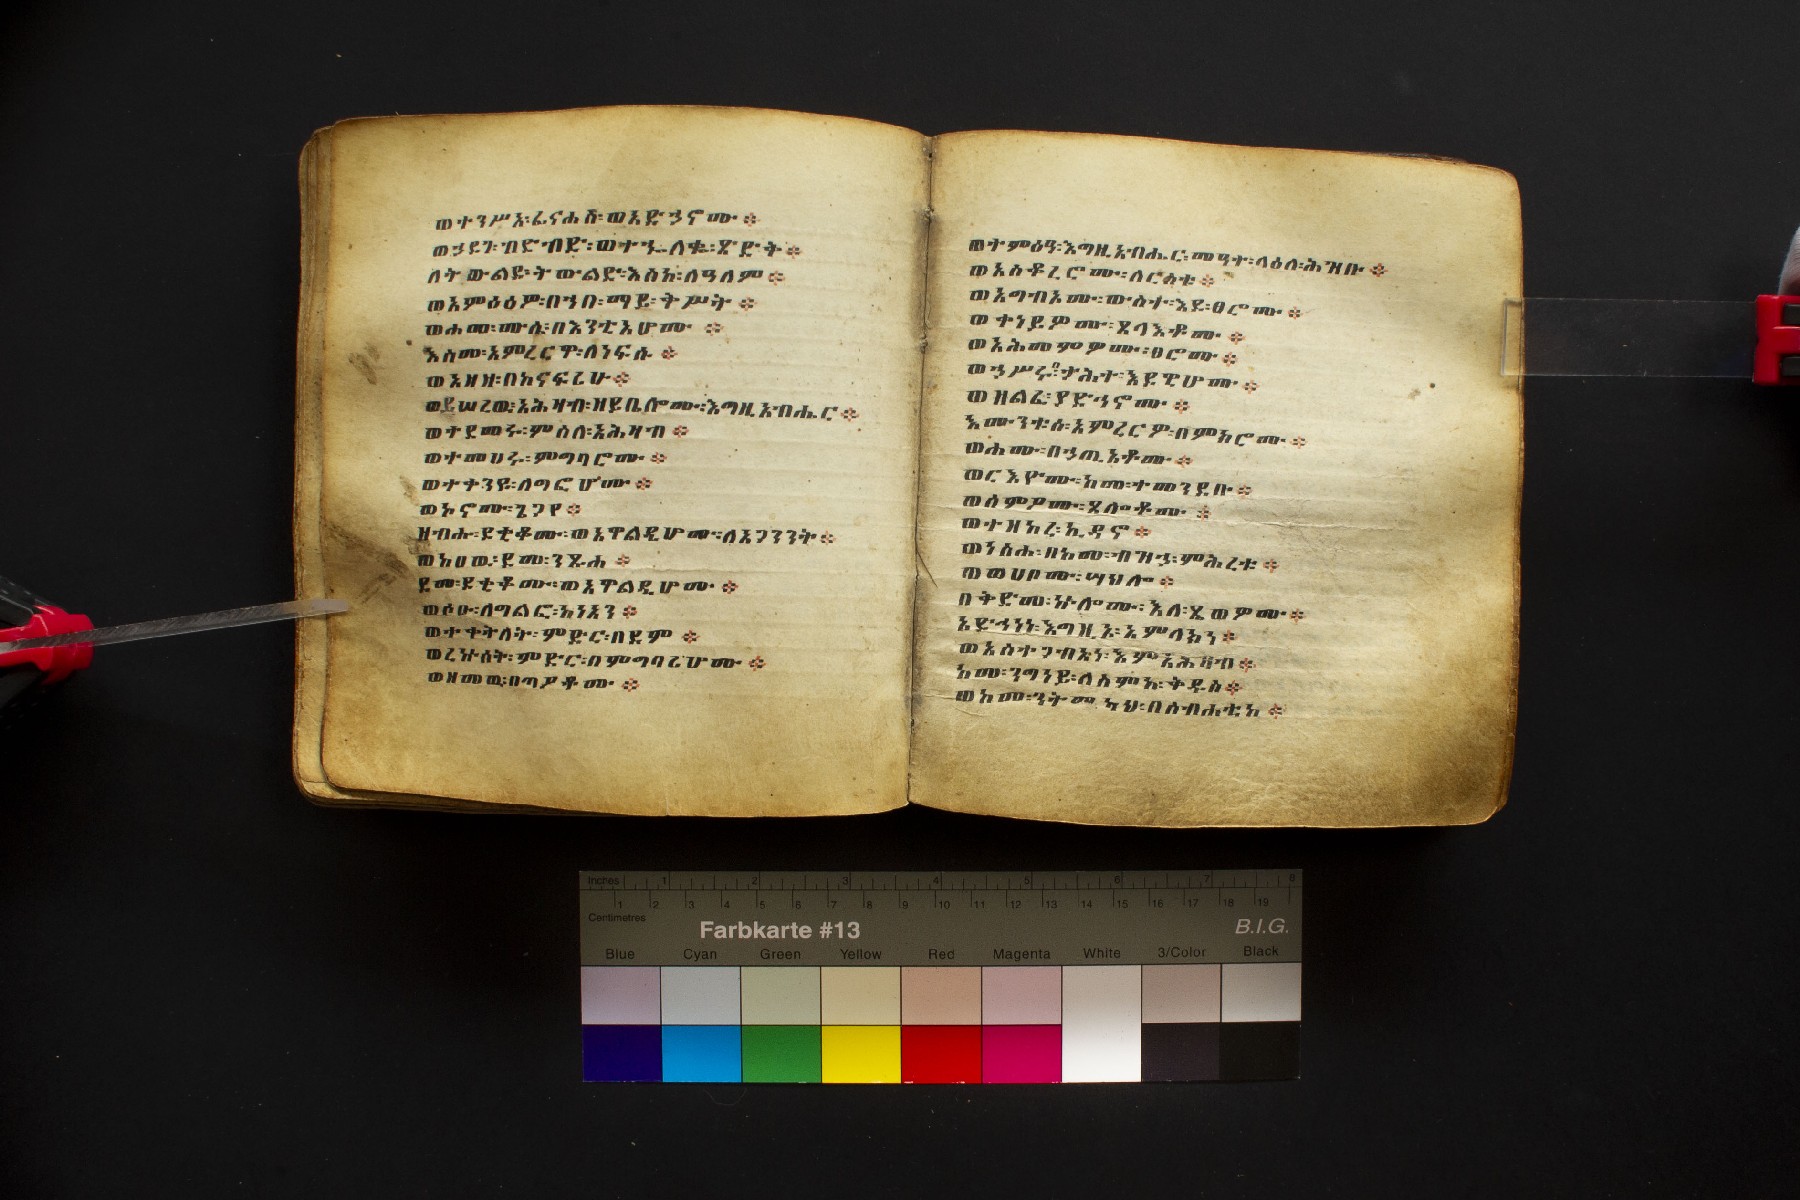 ወተንሥአ፡ፊናሐሽ፡ወአድኃኖሙ፨
ወኃደገ፡ብድብድ፡ወተኈለቈ፡ጽድቀ፨
ለትውልደ፡ትውልድ፡እስከ፡ለዓለም፨
ወአምዕዕዎ፡በኀበ፡ማይ፡ቅሥት፨
ወሐመ፡ሙሴ፡በእንቲአሆሙ፨
እስመ፡አምረርዋ፡ለነፍሱ፨
ወአዘዘ፡በከናፍሪሁ፨
ወይሠረዉ፡አሕዛብ፡ዘይቤሎሙ፡እግዚአብሔር፨
ወተደመሩ፡ምስለ፡አሕዛብ፨
ወተመሀሩ፡ምግባሮሙ፨
ወተቀንዩ፡ለግፎሆሙ፨
ወኮኖሙ፡ጌጋየ፨
ዘብሑ፡ደቂቆሙ፡ወአዋልዲሆሙ፡ለአጋንንት፨
ወከዐዉ፡ደመ፡ንጹሐ፨
ደመ፡ደቂቆሙ፡ወአዋልዲሆሙ፨
ወሦዑ፡ለግልፎ፡ከነአን፨
ወተቀትለት፡ምድር፡በደም፨
ወረኵሰት፡ምድር፡በምግባሪሆሙ፨
ወዘመዉ፡በጣዖቶሙ፨
ወተምዕዓ፡እግዚአብሔር፡መዓተ፡ላዕለ፡ሕዝቡ፨
ወአስቆረርሙ፡ለርስቱ፨
ወአግብኦሙ፡ውስተ፡እደ፡ፀሮሙ፨
ወተነይዎሙ፡ጸላእቶሙ፨
ወአሕመምዎሙ፡ፀሮሙ፨
ወኃሥሩ፡ታሕተ፡እደዊሆሙ፨
ወዘልፈ፡ያድኅኖሙ፨
እሙንቱሰ፡አምረርዎ፡በምክሮሙ፨
ወሐሙ፡በኃጢአቶሙ፨
ወርእዮሙ፡ከመ፡ተመንደቡ፨
ወሰምዖሙ፡ጸሎቶሙ፨
ወተዘከረ፡ኪዳኖ፨
ወነስሐ፡በከመ፡ብዝኃ፡ምሕረቱ፨
ወወሀቦሙ፡ሣህሎ፨
በቅድመ፡ኵሎሙ፡እለ፡ፄወዎሙ፨
አድኅነነ፡እግዚኦ፡አምላክነ፨
ወአስተጋብአነ፡እምአሕዛብ፨
ከመ፡ንግነይ፡ለስምከ፡ቅዱስ፨
ወከመ፡ንትመካህ፡በስብሐቲከ፨
Inches 1 2 3 4 5 6 7 8
1 2 3 4 5 6 7 8 9 10 11 12 13 14 15 16 17 18 19
Centimetres
Farbkarte #13 B.I.G.
Blue Cyan Green Yellow Red Magenta White 3/Color Black